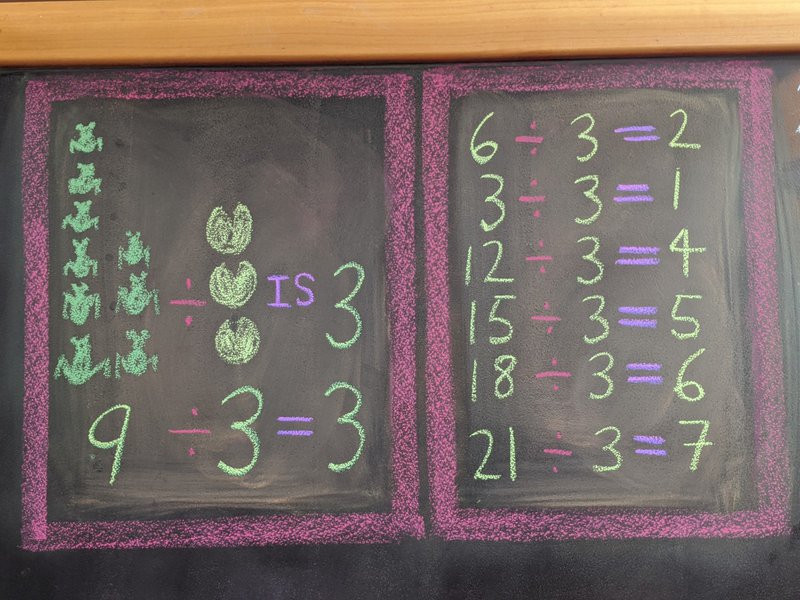 ÷ IS 3
9 ÷ 3 = 3
6 ÷ 3 = 2
3 ÷ 3 = 1
12 ÷ 3 = 4
15 ÷ 3 = 5
18 ÷ 3 = 6
21 ÷ 3 = 7